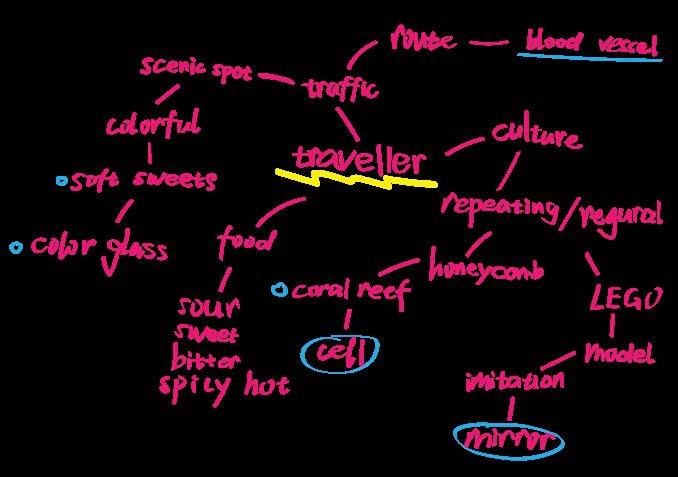 route
blood vessel
scenic spot
traffic
colorful
culture
traveller
soft sweets
repeating/regural
color glass
food
honeycomb
coral reef
LEGO
sour
sweet
cell
model
bitter
spicy hot
imitation
mirror